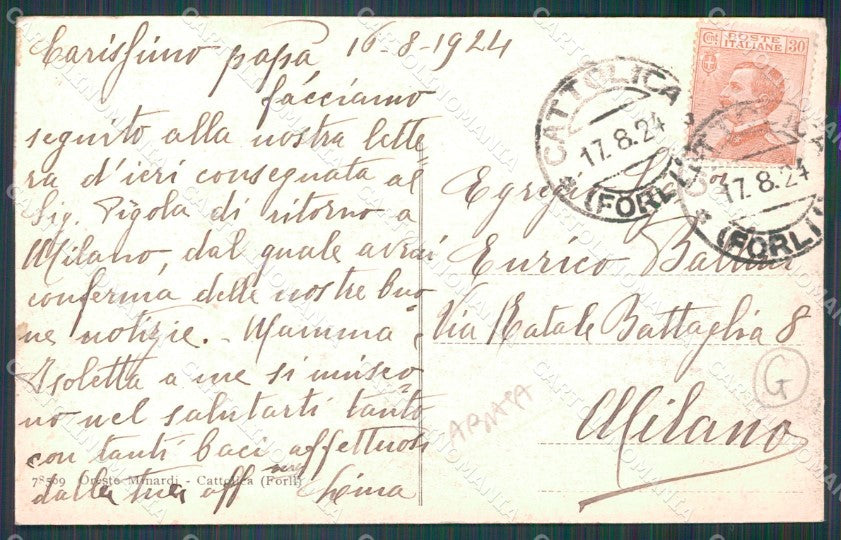 Carissimo papà 16-8-1924
facciamo
seguito alla nostra lette
ra d'ieri consegnata al
Sig. Pigola di ritorno a
Milano, dal quale avrai
conferma delle nostre buo
ne notizie. - Mamma e
Isoletta a me si unisco
no nel salutarti tanto
con tanti baci affettuosi
dalla tua aff
78569 Oreste Minardi - Cattolica (Forlì)
POSTE ITALIANE
30
CATTOLICA
17.8.24
(FORLI)
CATTOLICA
17.8.24
(FORLI)
Enrico
Via Natale Battaglia 8
Milano
G
CARTOLINOMANIA